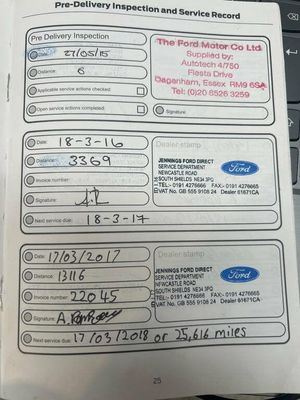 Pre-Delivery Inspection and Service Record
Pre Delivery Inspection
Date: 27/05/15
Distance: 6
Applicable service actions checked:
Open service actions completed:
The Ford Motor Co Ltd
Supplied by:
Autotech 4/750
Fiesta Drive
Dagenham, Essex RM9 6SA
Tel: 0)20 8526 3259
Signature
Date: 18-3-16
Distance: 3369
Invoice number:
Signature:
Next service due: 18-3-17
Dealer stamp
JENNINGS FORD DIRECT
SERVICE DEPARTMENT
NEWCASTLE ROAD
SOUTH SHIELDS NE34 3PQ
TEL:- 0191 4276666 FAX:- 0191 4276665
VAT No. GB 555 9108 24 Dealer 61671CA
Ford
Date: 17/03/2017
Distance: 13116
Invoice number: 22045
Signature: A.
Next service due: 17/03/2018 or 25,616 miles
Dealer stamp
JENNINGS FORD DIRECT
SERVICE DEPARTMENT
NEWCASTLE ROAD
SOUTH SHIELDS NE34 3PQ
TEL:- 0191 4276666 FAX:- 0191 4276665
VAT No. GB 555 9108 24 Dealer 61671CA
Ford
25